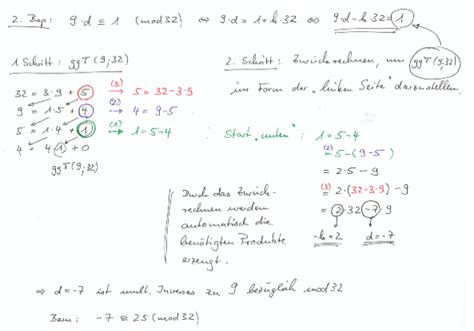 2. Bsp: 9·d ≡ 1 (mod 32) ⇔ 9·d = 1+k·32 ⇔ 9·d-k·32=1
1. Schritt: ggT(9;32)
32 = 3·9 + 5 (3)→ 5 = 32-3·9
9 = 1·5 + 4 (2)→ 4 = 9-5
5 = 1·4 + 1 (1)→ 1 = 5-4
4 = 4·1 + 0
ggT(9;32)
2. Schritt: Zurückrechnen, um ggT(9;32)
in Form der "linken Seite" darzustellen.
Start "unten": 1 = 5-4
(2)= 5-(9-5)
= 2·5 - 9
(3)= 2·(32-3·9) - 9
= 2·32 -7·9
-k=2 d=-7
Durch das Zurück-
rechnen werden
automatisch die
benötigten Produkte
erzeugt.
⇒ d=-7 ist mult. Inverses zu 9 bezüglich mod 32
Bem: -7 ≡ 25 (mod 32)